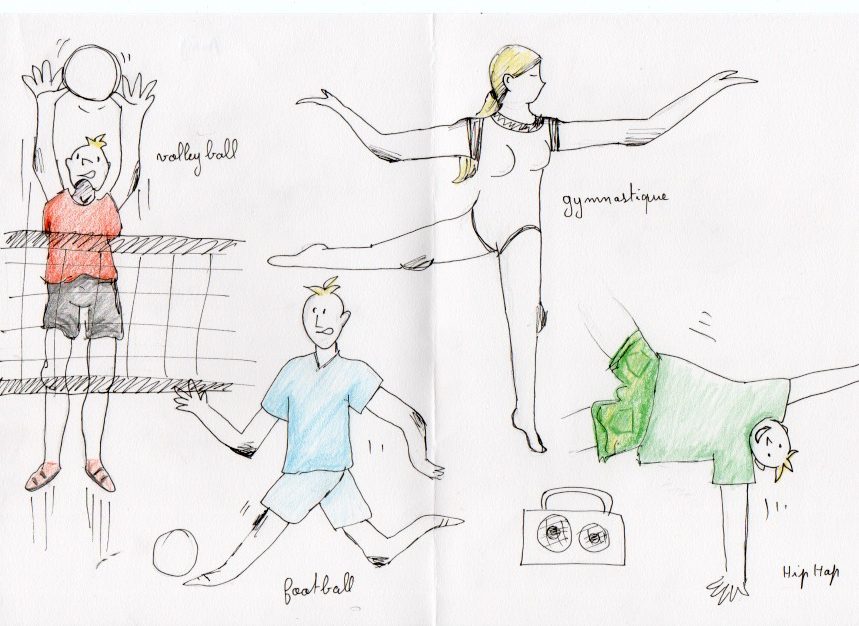 volley ball
gymnastique
football
Hip Hop